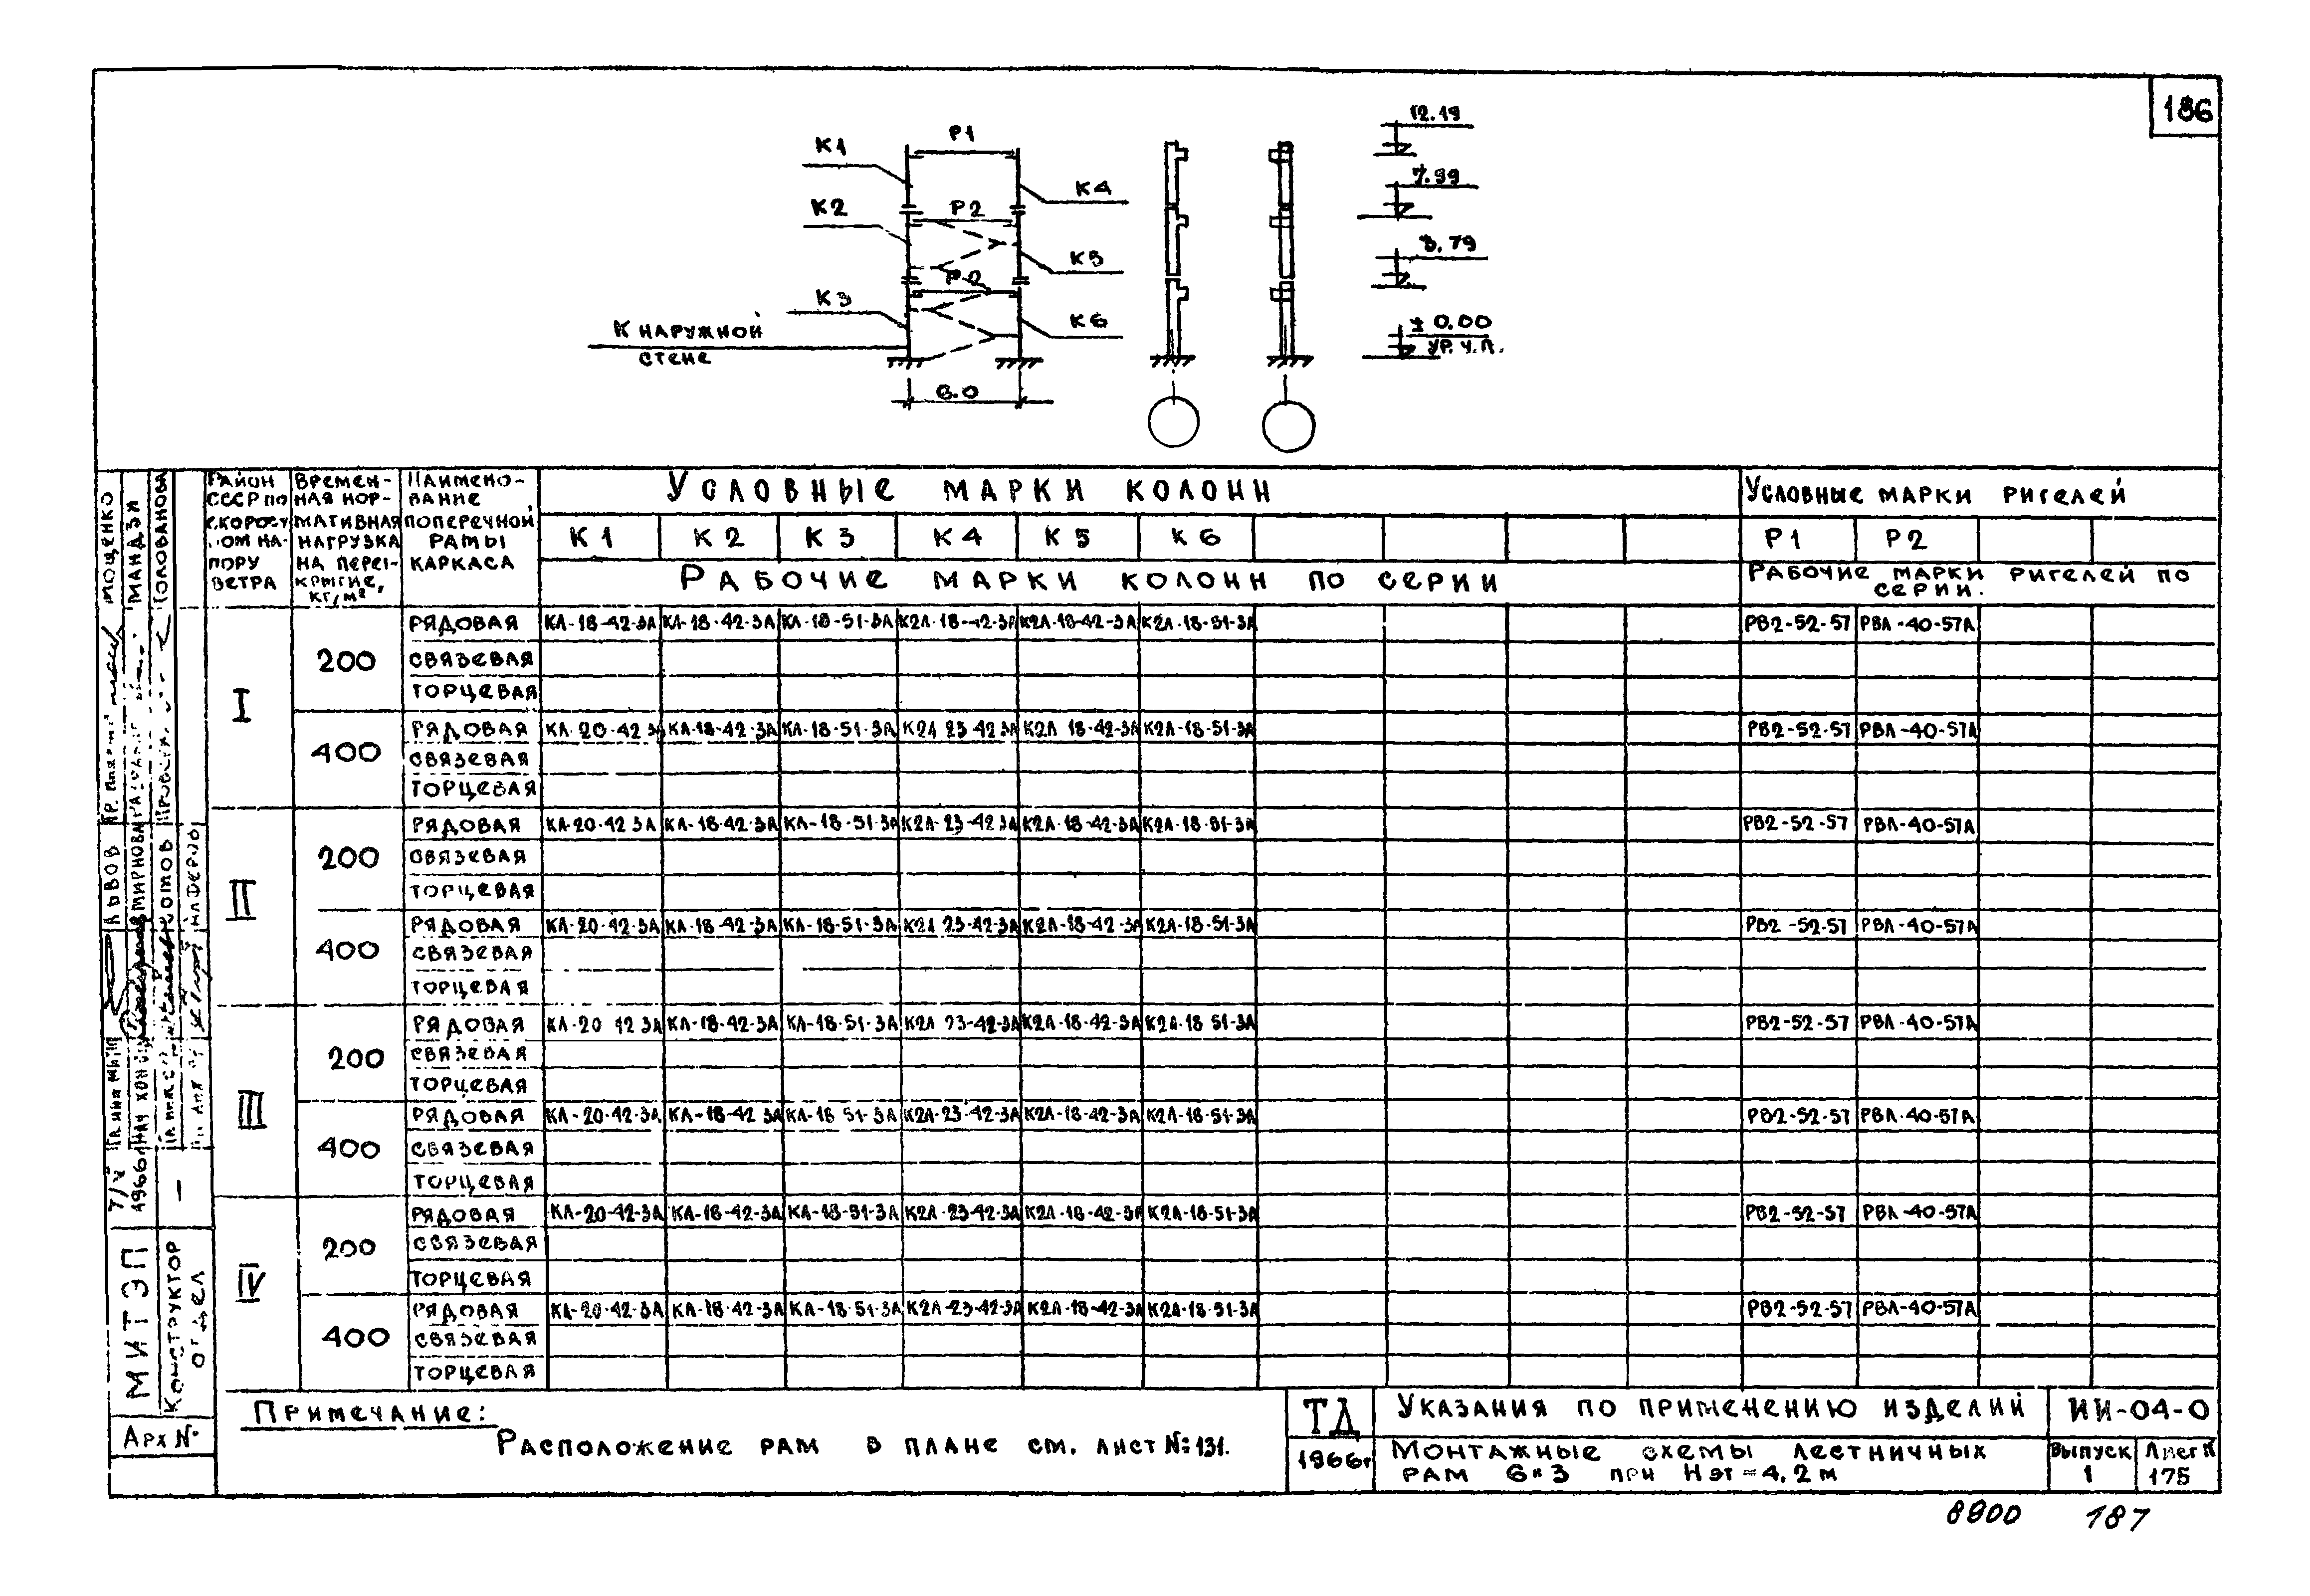 186
К1
К2
К3
Р1
Р2
Р2
К4
К5
К6
К НАРУЖНОЙ
СТЕНЕ
6.0
12.19
7.99
3.79
± 0.00
УР. Ч.П.
РАЙОН СССР ПО СКОРОСТНОМ НАПОРУ ВЕТРА
ВРЕМЕННАЯ НОРМАТИВНАЯ НАГРУЗКА НА ПЕРЕКРЫТИЕ, КГ/М²
НАИМЕНОВАНИЕ ПОПЕРЕЧНОЙ РАМЫ КАРКАСА
УСЛОВНЫЕ МАРКИ КОЛОНН
УСЛОВНЫЕ МАРКИ РИГЕЛЕЙ
К1 К2 К3 К4 К5 К6 Р1 Р2
РАБОЧИЕ МАРКИ КОЛОНН ПО СЕРИИ
РАБОЧИЕ МАРКИ РИГЕЛЕЙ ПО
СЕРИИ.
I
200
РЯДОВАЯ КЛ-18-42-3А КЛ-18-42-3А КЛ-18-51-3А К2Л-18-42-3А К2Л-18-42-3А К2Л-18-51-3А РВ2-52-57 РВЛ-40-57А
СВЯЗЕВАЯ
ТОРЦЕВАЯ
400
РЯДОВАЯ КЛ-20-42 3А КЛ-18-42-3А КЛ-18-51-3А К2Л 23 42 3А К2Л 18-42-3А К2Л-18-51-3А РВ2-52-57 РВЛ-40-57А
СВЯЗЕВАЯ
ТОРЦЕВАЯ
II
200
РЯДОВАЯ КЛ-20-42 3А КЛ-18-42-3А КЛ-18-51-3А К2Л-23-42 3А К2Л-18-42-3А К2Л-18-51-3А РВ2-52-57 РВЛ-40-57А
СВЯЗЕВАЯ
ТОРЦЕВАЯ
400
РЯДОВАЯ КЛ-20-42-3А КЛ-18-42-3А КЛ-18-51-3А К2Л 23-42-3А К2Л-18-42-3А К2Л-18-51-3А РВ2-52-57 РВЛ-40-57А
СВЯЗЕВАЯ
ТОРЦЕВАЯ
III
200
РЯДОВАЯ КЛ-20 42 3А КЛ-18-42-3А КЛ-18-51-3А К2Л 23-42-3А К2Л-18-42-3А К2Л-18 51-3А РВ2-52-57 РВЛ-40-57А
СВЯЗЕВАЯ
ТОРЦЕВАЯ
400
РЯДОВАЯ КЛ-20-42-3А КЛ-18-42 3А КЛ-18 51-3А К2Л-23-42-3А К2Л-18-42-3А К2Л-18-51-3А РВ2-52-57 РВЛ-40-57А
СВЯЗЕВАЯ
ТОРЦЕВАЯ
IV
200
РЯДОВАЯ КЛ-20-42-3А КЛ-18-42-3А КЛ-18-51-3А К2Л-23-42-3А К2Л-18-42-3А К2Л-18-51-3А РВ2-52-57 РВЛ-40-57А
СВЯЗЕВАЯ
ТОРЦЕВАЯ
400
РЯДОВАЯ КЛ-20-42-3А КЛ-18-42-3А КЛ-18-51-3А К2Л-23-42-3А К2Л-18-42-3А К2Л-18-51-3А РВ2-52-57 РВЛ-40-57А
СВЯЗЕВАЯ
ТОРЦЕВАЯ
МОЩЕНКО
МАНДЗИ
ГОЛОВАНОВА
ЛЬВОВ
СМИРНОВА
КОТОВ
1966
МИТЭП
КОНСТРУКТОР
ОТДЕЛ
АРХ №
ПРИМЕЧАНИЕ:
РАСПОЛОЖЕНИЕ РАМ В ПЛАНЕ СМ. ЛИСТ №131.
ТД
1966г
УКАЗАНИЯ ПО ПРИМЕНЕНИЮ ИЗДЕЛИЙ
МОНТАЖНЫЕ СХЕМЫ ЛЕСТНИЧНЫХ
РАМ 6×3 ПРИ Нэт=4,2м
ИИ-04-0
ВЫПУСК
1
ЛИСТ №
175
8900 187